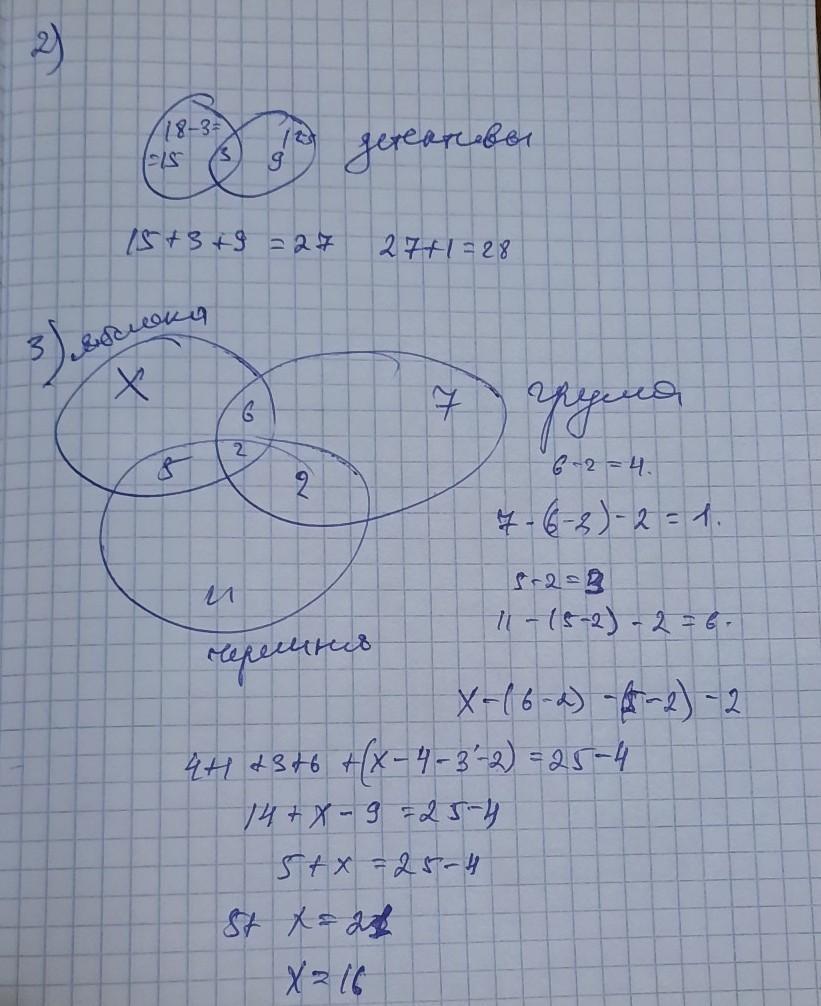 2)
18-3=
=15 3 9 12
детективы
15+3+9 = 27 27+1=28
3) яблока
X 6 7 груша
5 2 2
11
черешня
6-2=4.
7-(6-2)-2=1.
5-2=3
11-(5-2)-2=6.
X-(6-2)-(5-2)-2
4+1+3+6+(X-4-3-2)=25-4
14+X-9=25-4
5+X=25-4
5+ X=21
X=16